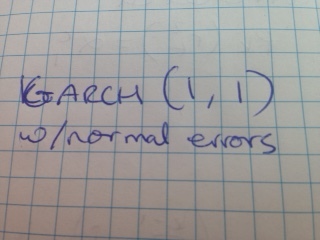 GARCH (1, 1)
w/normal errors